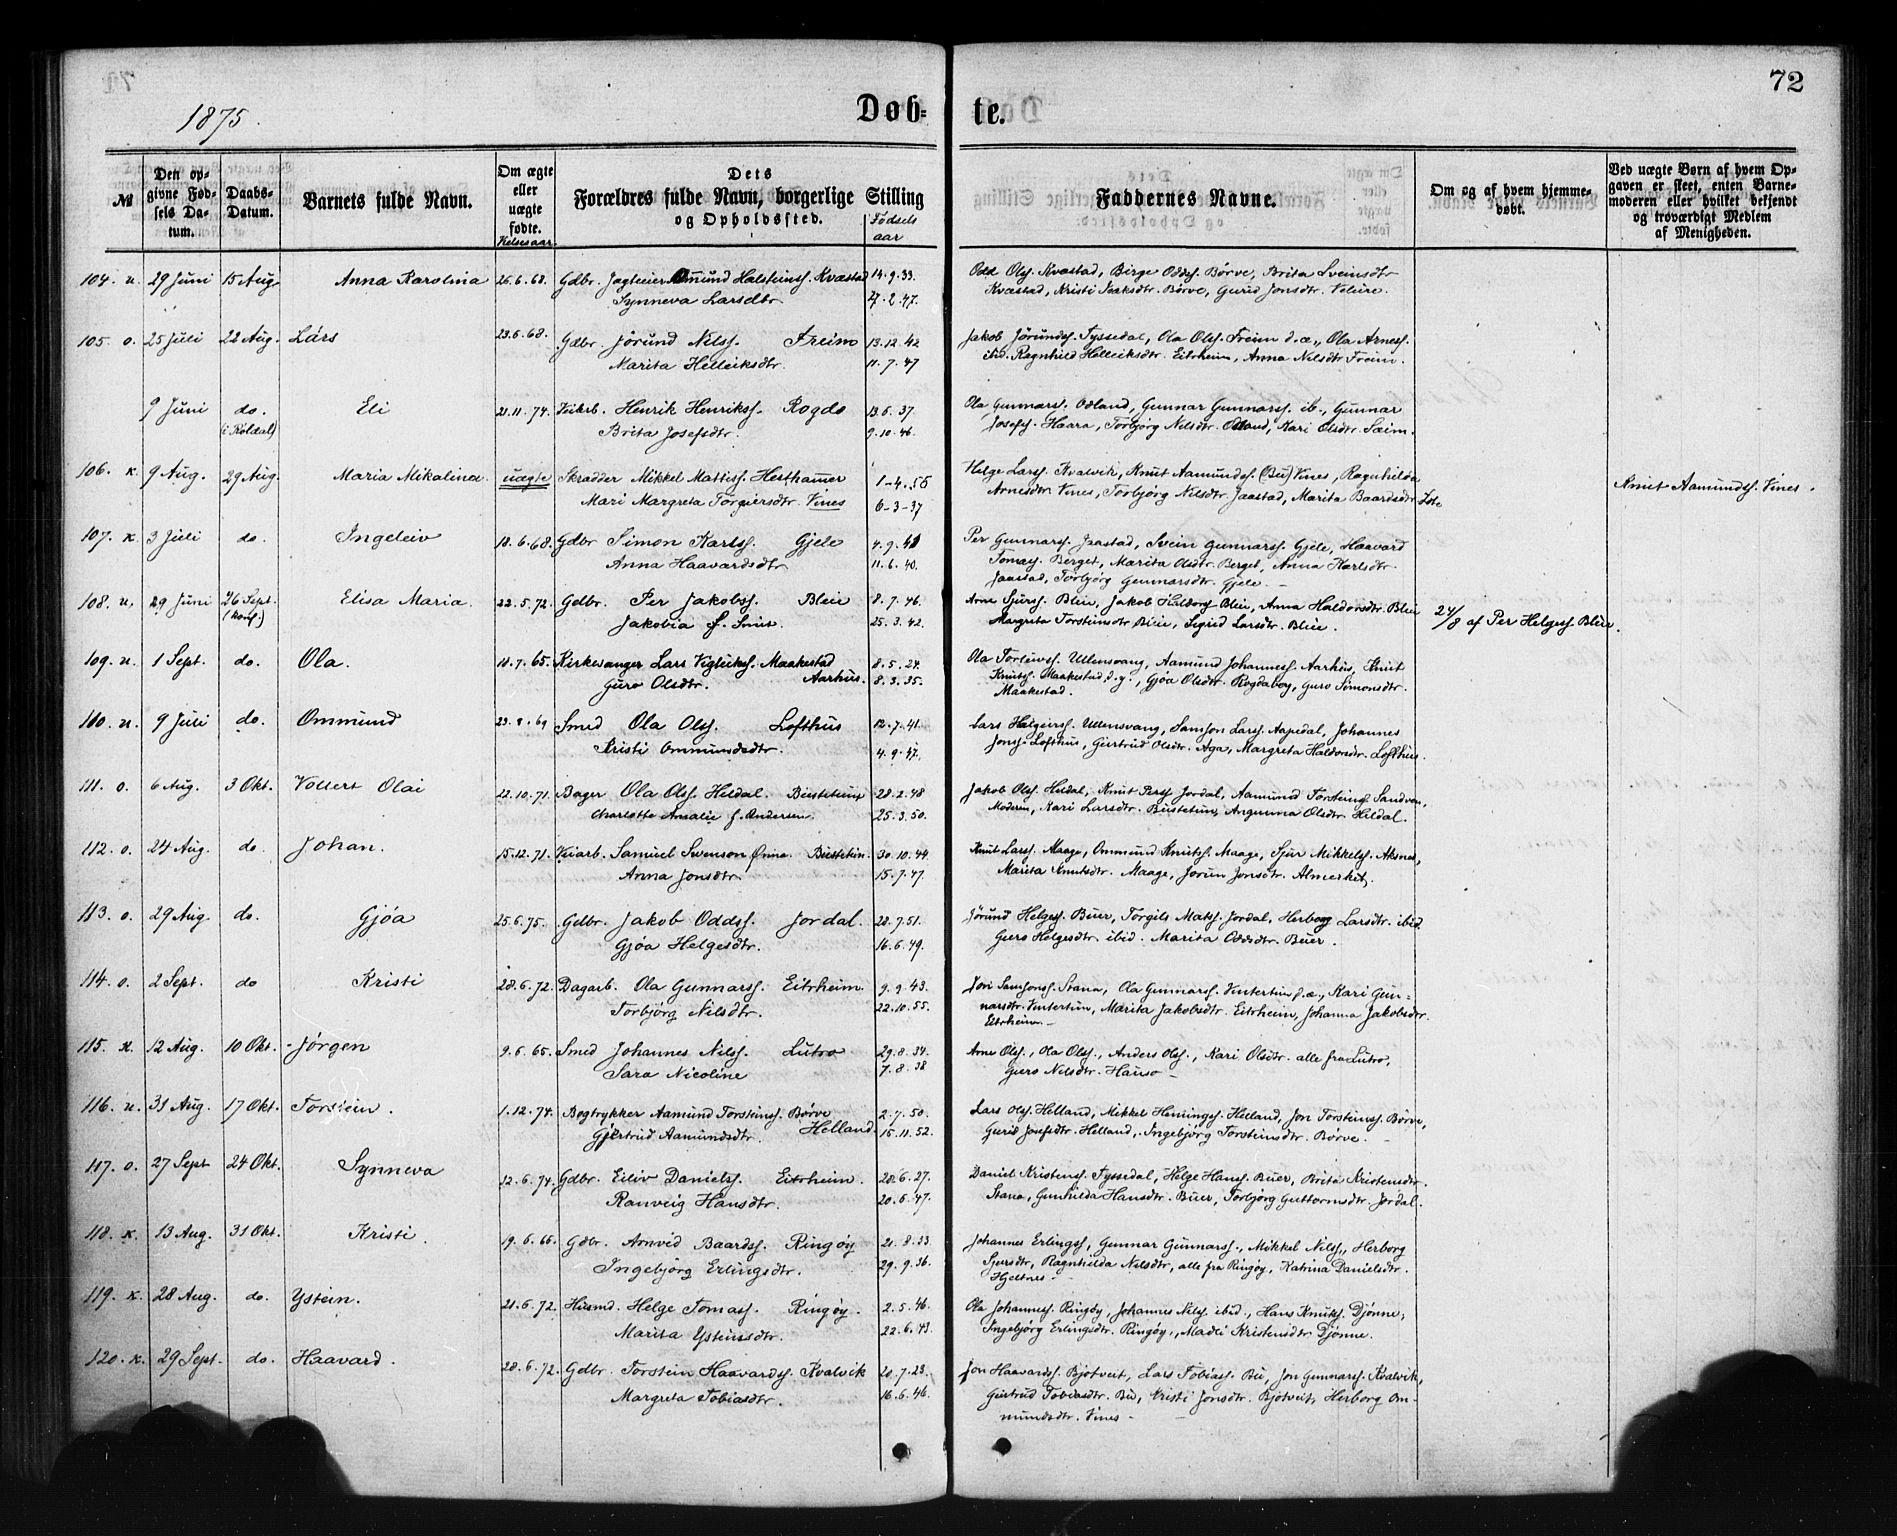 1875.
Døb-
te.
72
№
Den opgivne Fødsels Datum.
Daabs-Datum.
Barnets fulde Navn.
Om ægte eller uægte fødte.
Vielsesaar.
Dets Forældres fulde Navn, borgerlige Stilling og Opholdssted.
Fødsels aar
Faddernes Navne.
Om og af hvem hjemmedøbt.
Ved uægte Børn af hvem Opgaven er skeet, enten Barnemoderen eller hvilket bekjendt og troværdigt Medlem af Menigheden.
104. u. 29 Juni 15 Aug. Anna Karolina 26.6.68. Gdbr. Jagteier Omund Halsteins. Kvæstad 14.9.33. Odd Ols. Kvæstad, Birge Odds. Børve, Brita Sveinsdtr
Synneva Larsdtr 27.2.47. Kvæstad, Kristi Isaksdtr. Børve, Gurid Jonsdtr. Velure.
105. o. 25 Juli 22 Aug. Lars 23.6.68. Gdbr. Jørund Nilss. Freim 13.12.42 Jakob Jørunds. Tyssedal, Ola Ols. Freim d.æ., Ola Arness.
Marita Helleiksdtr. 11.7.47 ibid. Ragnhild Helleiksdtr. Eitrheim, Anna Nilsdtr Freim.
9 Juni do. Eli 21.11.74. Henrik Henrikss. Rogde 13.6.37. Ola Gunnars. Odland, Gunnar Gunnarss. ib., Gunnar
(i Røldal) Brita Josefsdtr. 9.10.46. Josefs. Haara, Torbjørg Nilsdtr. Odland, Kari Olsdtr. Seim.
106. k. 9 Aug. 29 Aug. Maria Mikalina. uægte Skrædder Mikkel Mattiss. Hesthamer 1-4.56 Helge Larss. Kvalvik, Knut Aamunds. (Bu) Vines, Ragnhilda
Mari Margreta Torgiersdtr. Vines 6-3-37 Arnesdtr. Vines, Torbjørg Nilsdtr. Jaastad, Marita Baardsdtr. Lote Knut Aamunds. Vines.
107. k. 3 Juli do. Ingeleiv 18.6.68. Gdbr Simon Karlss. Gjele 4.9.41 Per Gunnarss. Jaastad, Svein Gunnarss. Gjele, Haavard
Anna Haavardsdtr 11.6.40. Tomas. Berget, Marita Olsdtr. Berget, Anna Karlsdtr.
Jaastad, Torbjørg Gunnarsdtr. Gjele.
108. u, 29 Juni 26 Sept. Elisa Maria. 22.5.72. Gdbr. Per Jakobss. Bleie 8.7.46. Arne Sjurss. Bleie, Jakob Haldors. Bleie, Anna Haldorsdtr. Bleie
(konf.) Jakobia f. Smit. 25.3.42. Margreta Torsteinsdtr Bleie, Sigrid Larsdtr. Bleie. 24/8 af Per Helgess. Bleie.
109. u. 1 Sept. do. Ola. 11.7.65. Kirkesanger Lars Vigleikss. Maakestad 8.5.24. Ola Torleivss. Ullensvang, Aamund Johanness. Aarhus, Knut
Guro Olsdtr. Aarhus. 8.3.35. Knutss. Maakestad, d.y., Gjøa Olsdtr. Rogdaberg, Guro Simonsdtr.
Maakestad.
110. u. 9 Juli do. Ommund 23.8.69 Smed Ola Ols. Lofthus 12.7.41. Lars Helgeirss. Ullensvang, Samson Larss. Aapedal, Johannes
Kristi Ommundsdtr. 4.9.47. Jons. Lofthus, Geirtrud Olsdtr. Aga, Margreta Haldorsdtr. Lofthus.
111. o. 6 Aug. 3 Okt. Vollert Olai 22.10.71. Bager Ola Ols. Hildal. Bustetun 28.2.48 Jakob Ols. Hildal, Knut Perss Jordal, Aamund Torsteins. Sandven,
Charlotte Amalie f. Andersen. 25.3.50. Moderen, Kari Larsdtr. Bustetun, Angunna Olsdtr. Hildal.
112. o. 24 Aug. do. Johan. 15.12.71. Veiarb. Samuel Svenson Ønne. Bustetun. 30.10.44. Knut Larss. Maage, Ommund Knutss. Maage, Sjur Mikkels. Aksnes,
Anna Jonsdtr. 15.7.47. Marita Knutsdtr. Maage, Jorun Jonsdtr. Almerket.
113. o. 29 Aug. do. Gjøa 25.6.75. Gdbr. Jakob Oddss. Jordal. 28.7.51. Jørund Helgess. Buer, Torgils Mats. Jordal, Herborg Larsdtr. ibid.
Gjøa Helgesdtr. 16.6.49. Guro Helgesdtr. ibid. Marita Oddsdtr. Buer.
114. o. 2 Sept. do Kristi 28.6.72. Dagarb. Ola Gunnarss. Eitrheim. 9.9.43. Jon Samsons. Stana, Ola Gunnarss. Vintertun d.æ., Kari Gun-
Torbjørg Nilsdtr. 22.10.55. narsdtr. Vintertun, Marita Jakobsdtr. Eitrheim, Johanna Jakobsdtr.
Eitrheim.
115. k. 12 Aug. 10 Okt. Jørgen 9.6.65. Smed Johannes Nilss. Lutro 29.8.34. Arne Ols., Ola Ols., Anders Ols., Kari Olsdtr. alle fra Lutro,
Sara Nicoline 7.8.38 Guro Nilsdtr. Hauso
116. u. 31 Aug. 17 Okt. Torstein. 1.12.74. Bogtrykker Aamund Torsteinss. Børve 2.7.50. Lars Ols. Helland, Mikkel Hemings. Helland, Jon Torsteinss. Børve,
Gjertrud Aamundsdtr. Helland. 15.11.52. Gurid Josefsdtr. Helland, Ingebjørg Torsteinsdtr. Børve.
117. o. 27 Sept 24 Okt. Synneva 12.6.74. Gdbr. Eiliv Daniels. Eitrheim. 28.6.27. Daniel Kristens. Tyssedal, Helge Hanss. Buer, Brita Kristensdtr.
Ranveig Hansdtr. 20.6.47. Stana, Gunhilda Hansdtr. Buer, Torbjørg Guttormsdtr. Jordal.
118. k. 13 Aug. 31 Okt. Kristi. 19.6.66. Gdbr. Arnvid Baardss. Ringøy 21.8.33 Johannes Erlings., Gunnar Gunnarss., Mikkel Nils., Herborg
Ingebjørg Erlingsdtr. 29.9.36. Sjursdtr, Ragnhilda Nilsdtr, alle fra Ringøy, Katrina Danielsdtr.
Hjeltnes
119. k. 28 Aug. do. Ystein. 21.6.72. Husmd. Helge Tomas. Ringøy. 2.5.46. Ola Johanness. Ringøy, Johannes Nils. ibid., Hans Knuts. Djønne,
Marita Ysteinsdtr. 22.6.43. Ingebjørg Erlingsdtr. Ringøy, Madli Kristensdtr. Djønne.
120. k. 29 Sept. do. Haavard. 28.6.72. Gdbr. Torstein Haavards. Kvalvik 20.7.23. Jon Haavards. Bjotveit, Lars Tobiass. Bu, Jon Gunnarss. Kvalvik,
Margreta Tobiasdtr. 16.6.46. Geirtrud Tobiasdtr. Bu, Kristi Jonsdtr. Bjotveit, Herborg Om-
mundsdtr. Vines